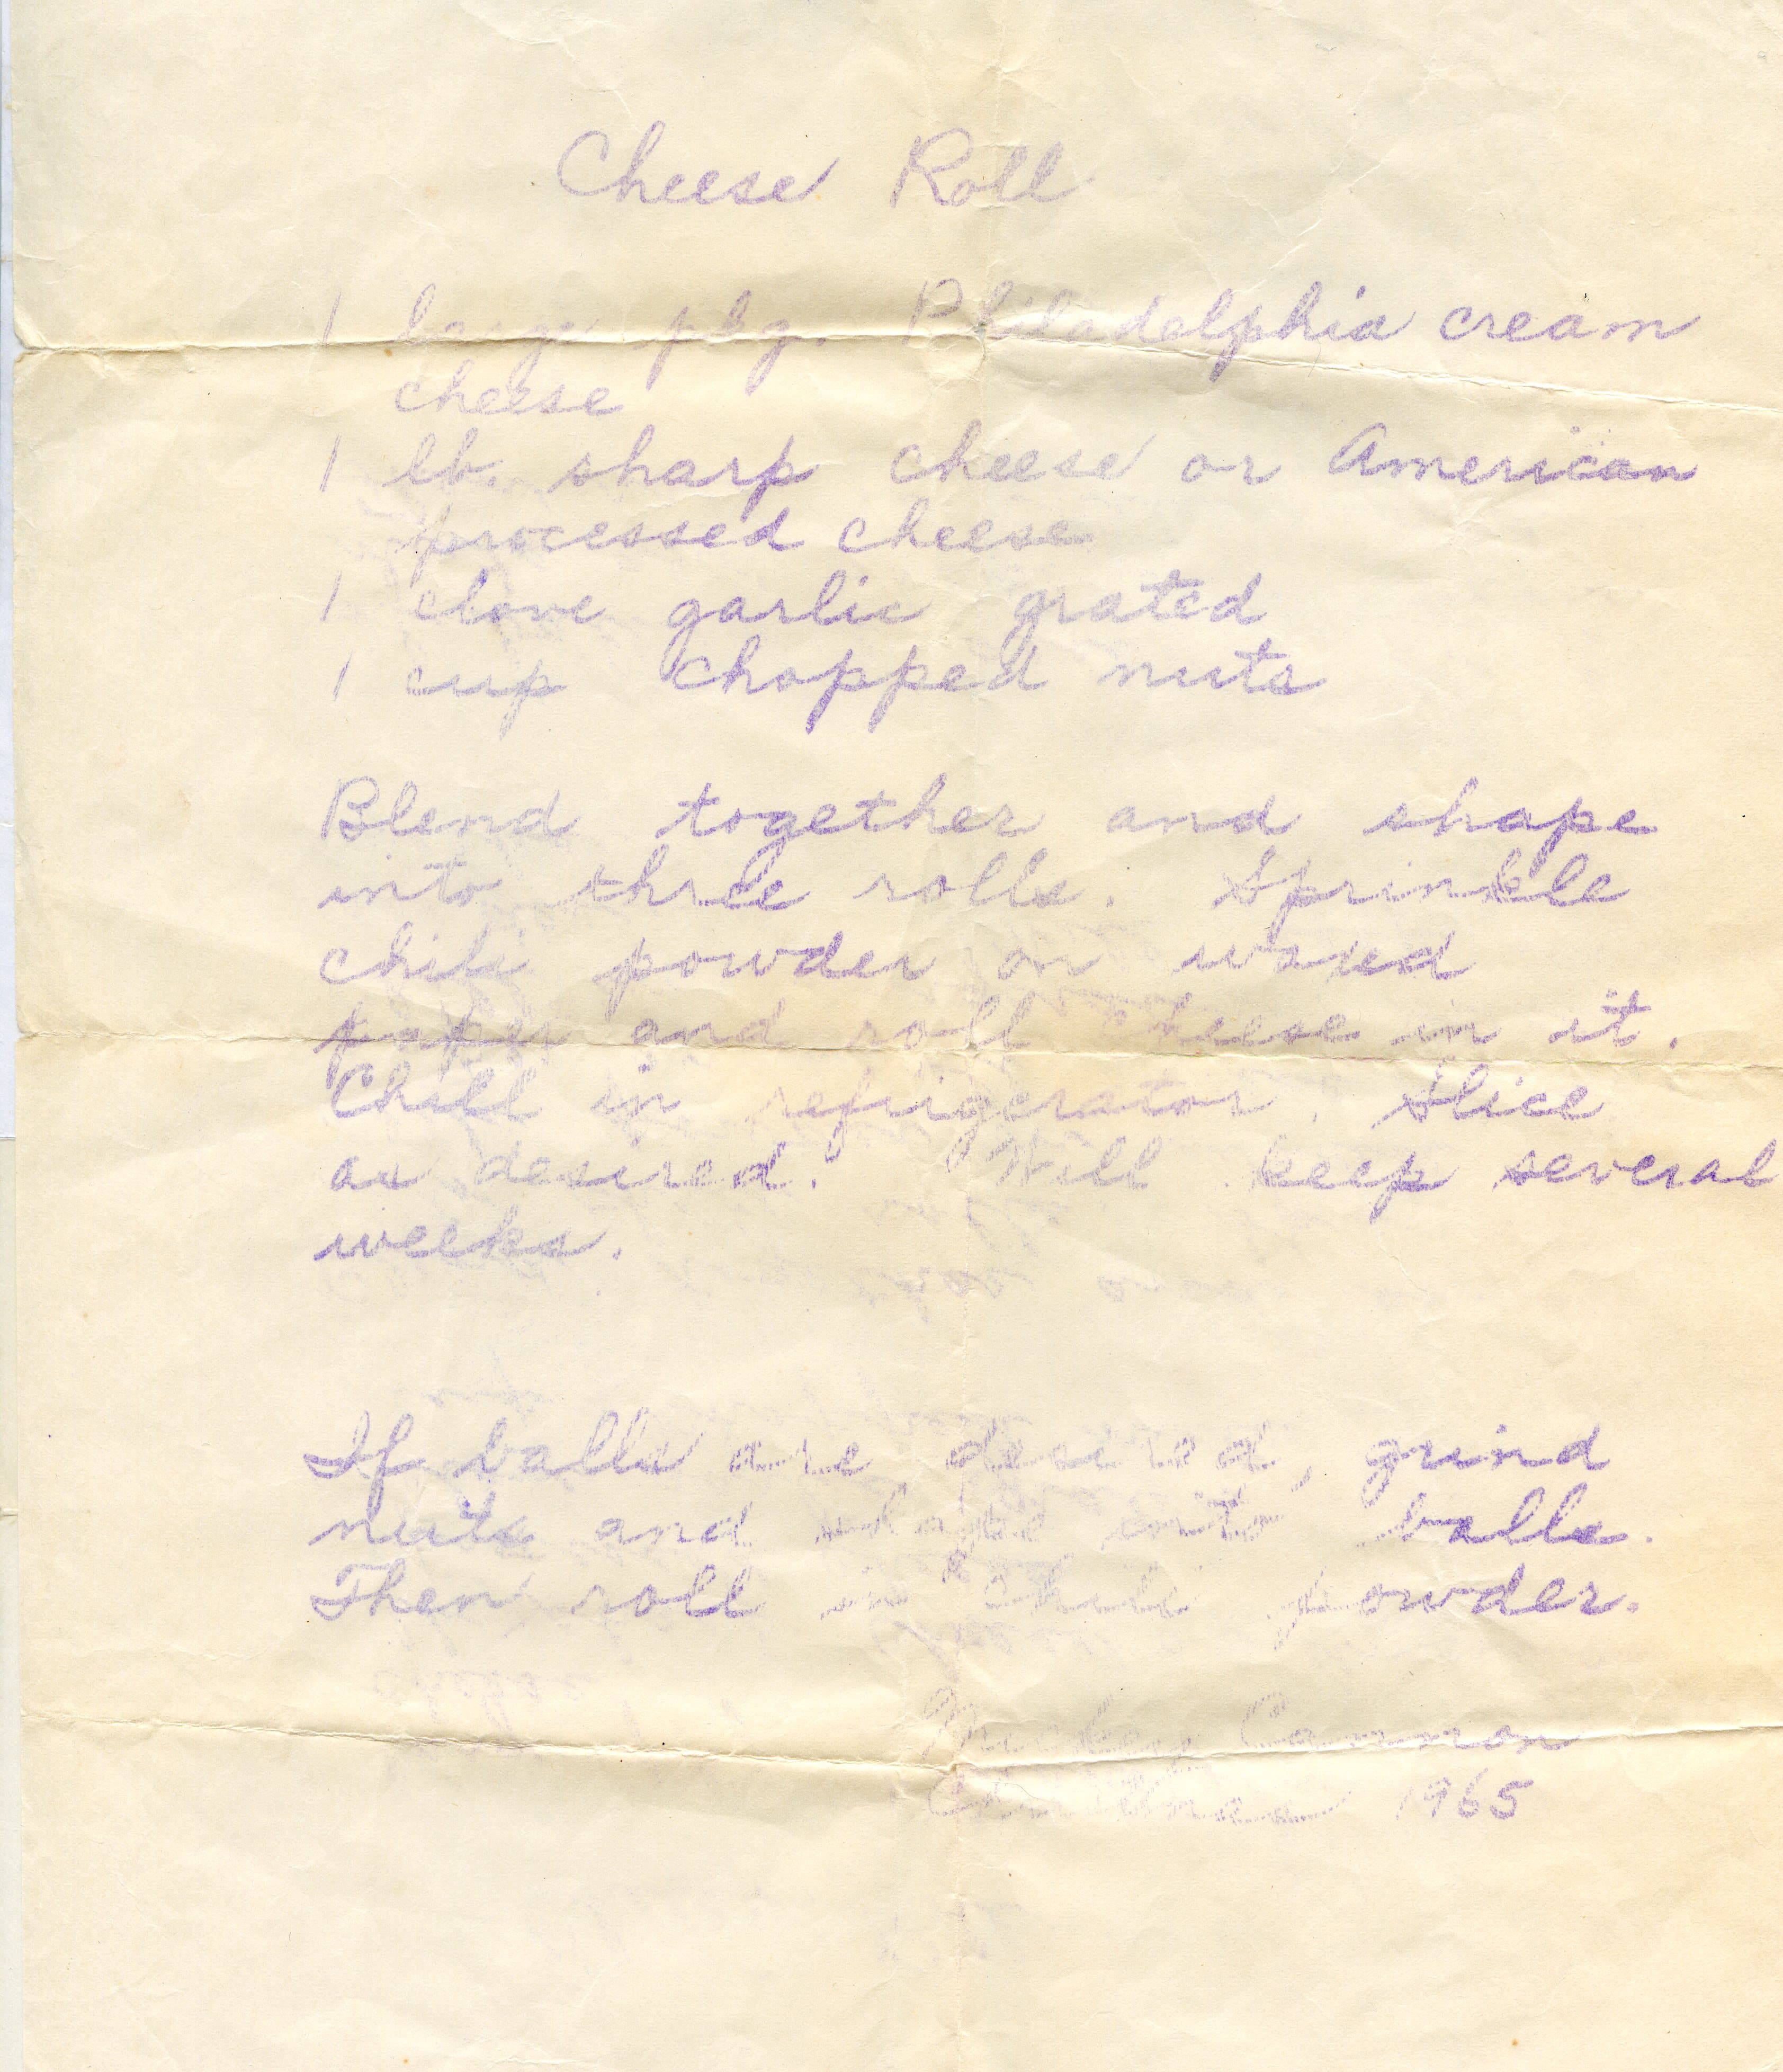 Cheese Roll
1 large pkg. Philadelphia cream
cheese
1 lb. sharp cheese or American
processed cheese
1 clove garlic grated
1 cup chopped nuts
Blend together and shape
into three rolls. Sprinkle
chili powder on waxed
paper and roll cheese in it.
Chill in refrigerator. Slice
as desired. Will keep several
weeks.
If balls are desired, grind
nuts and shape into balls.
Then roll in chili powder.
Cannon
Christmas 1965